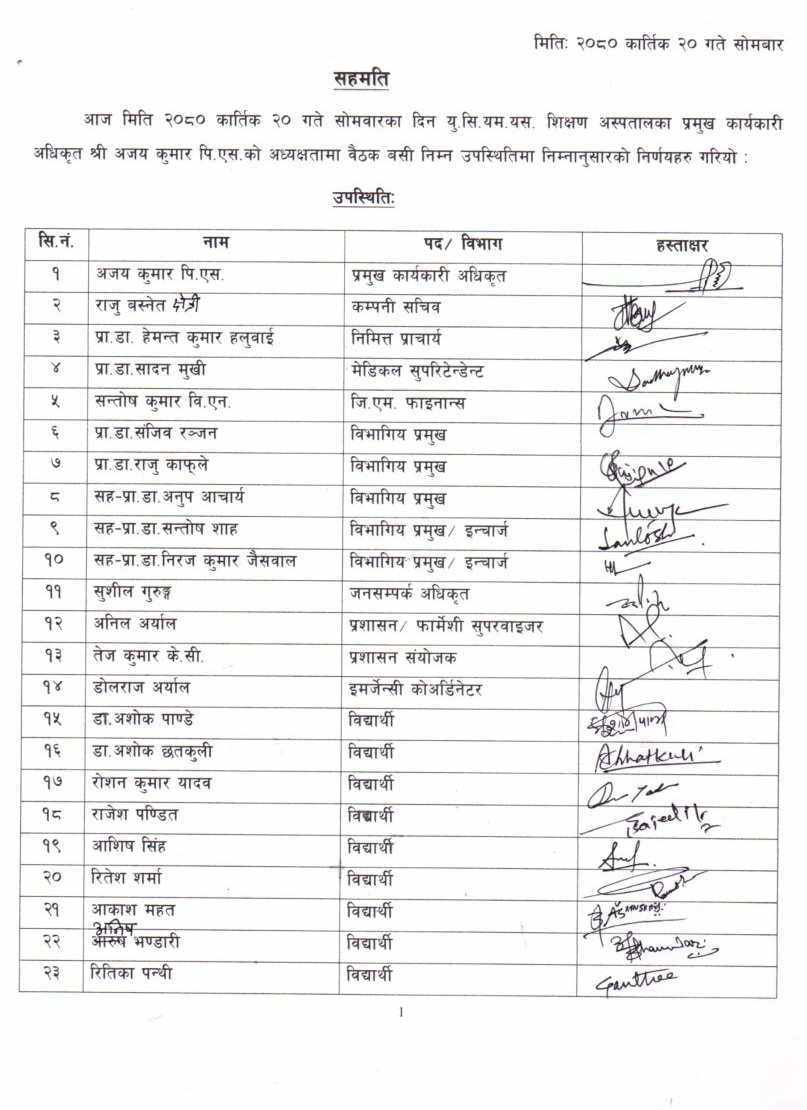 मितिः २०८० कार्तिक २० गते सोमबार
सहमति
आज मिति २०८० कार्तिक २० गते सोमवारका दिन यु.सि.यम.यस. शिक्षण अस्पतालका प्रमुख कार्यकारी
अधिकृत श्री अजय कुमार पि.एस.को अध्यक्षतामा वैठक बसी निम्न उपस्थितिमा निम्नानुसारको निर्णयहरु गरियो :
उपस्थितिः
सि.नं. नाम पद/ विभाग हस्ताक्षर
१ अजय कुमार पि.एस. प्रमुख कार्यकारी अधिकृत
२ राजु वस्नेत क्षेत्री कम्पनी सचिव
३ प्रा.डा. हेमन्त कुमार हलुवाई निमित्त प्राचार्य
४ प्रा.डा.सादन मुखी मेडिकल सुपरिटेन्डेन्ट
५ सन्तोष कुमार वि.एन. जि.एम. फाइनान्स
६ प्रा.डा.संजिव रञ्जन विभागिय प्रमुख
७ प्रा.डा.राजु काफ्ले विभागिय प्रमुख
८ सह-प्रा.डा.अनुप आचार्य विभागिय प्रमुख
९ सह-प्रा.डा.सन्तोष शाह विभागिय प्रमुख/ इन्चार्ज Santosh
१० सह-प्रा.डा.निरज कुमार जैसवाल विभागिय प्रमुख/ इन्चार्ज
११ सुशील गुरुङ्ग जनसम्पर्क अधिकृत
१२ अनिल अर्याल प्रशासन/ फार्मेशी सुपरवाइजर
१३ तेज कुमार के.सी. प्रशासन संयोजक
१४ डोलराज अर्याल इमर्जेन्सी कोअर्डिनेटर
१५ डा.अशोक पाण्डे विद्यार्थी
१६ डा.अशोक छतकुली विद्यार्थी Chhatkuli
१७ रोशन कुमार यादव विद्यार्थी
१८ राजेश पण्डित विद्यार्थी
१९ आशिष सिंह विद्यार्थी
२० रितेश शर्मा विद्यार्थी
२१ आकाश महत विद्यार्थी
२२ अनिष भण्डारी विद्यार्थी
२३ रितिका पन्थी विद्यार्थी
1